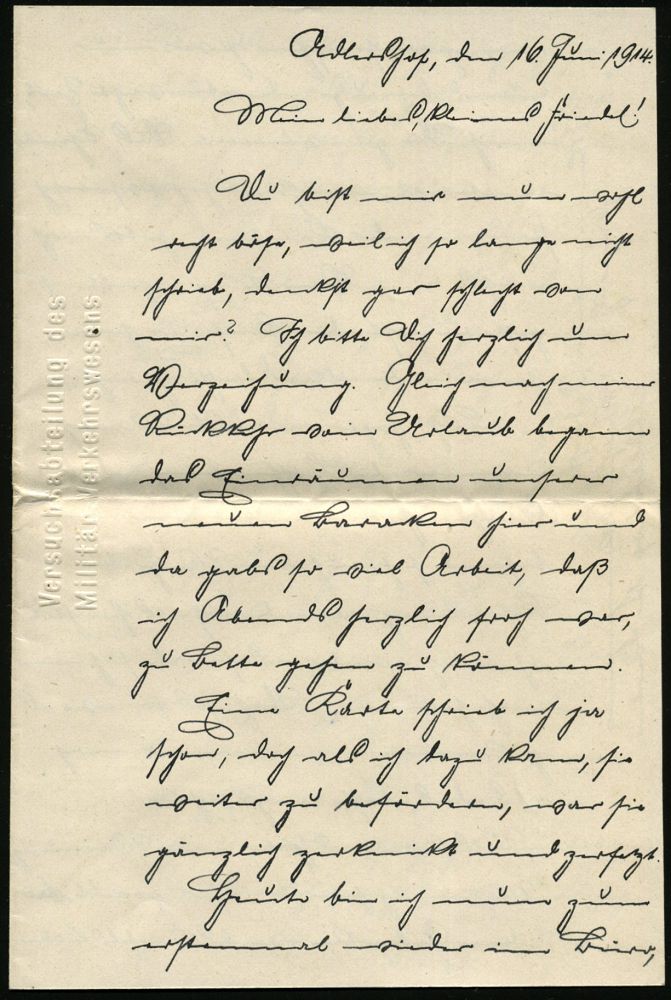 Adlershof, den 16. Juni 1914.
Mein liebes, kleines Friedel!
Du bist mir nun wohl
recht böse, weil ich so lange nicht
schrieb, denkst gar schlecht von
mir? Ich bitte Dich herzlich um
Verzeihung. Gleich nach meiner
Rückkehr vom Urlaub begann
das Einräumen unserer
neuen Baracken hier und
da gabs so viel Arbeit, daß
ich Abends herzlich froh war,
zu Bette gehen zu können.
Eine Karte schrieb ich ja
schon, doch als ich dazu kam, sie
weiter zu befördern, war sie
gänzlich zerknickt und zerfetzt.
Heute bin ich nun zum
erstenmal wieder im Büro,
Versuchsabteilung des
Militär-Verkehrswesens